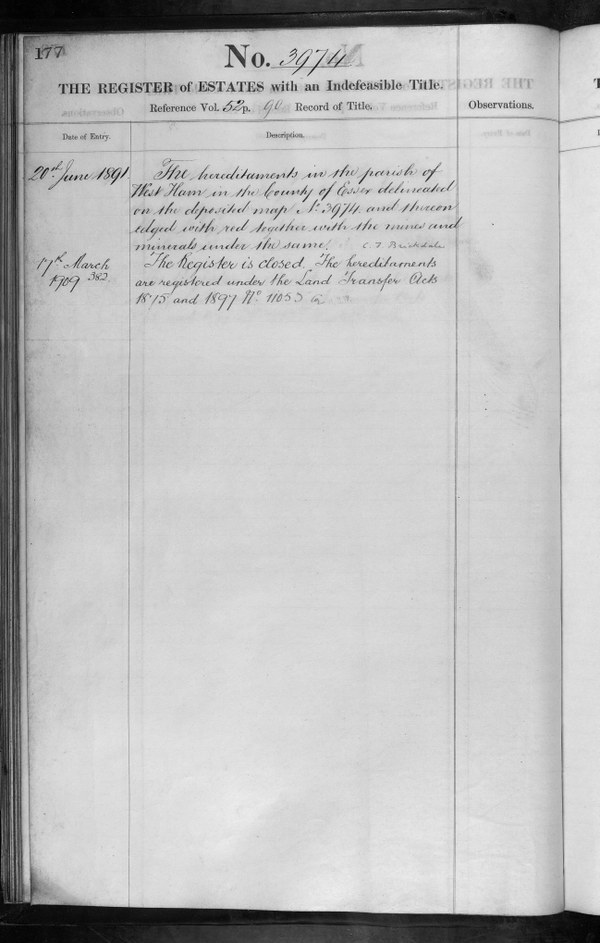 177
No. 3974
THE REGISTER of ESTATES with an Indefeasible Title.
Reference Vol. 52 p. 90 Record of Title.
Observations.
Date of Entry.
Description.
20th June 1891.
The hereditaments in the parish of
West Ham in the County of Essex delineated
on the deposited map No. 3974 and thereon
edged with red together with the mines and
minerals under the same.
C. F. Brickdale
17th March
1909 383.
The Register is closed. The hereditaments
are registered under the Land Transfer Acts
1875 and 1897 No. 11053